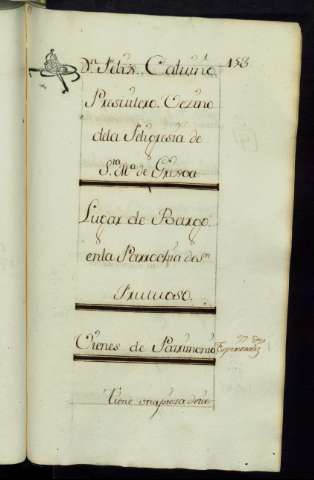 Dn. Felix Catuiño 153
Presuitero Vezino
dela Feligresia de
Sta. Ma. de Grixoa
Lugar de Bargo
enla Parrochia de Sn.
Frutuoso.
Vienes de Patrimonio
Tiene una pieza de